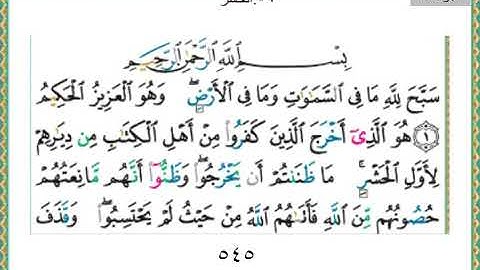 بِسْمِ اللَّهِ الرَّحْمَٰنِ الرَّحِيمِ
سَبَّحَ لِلَّهِ مَا فِي السَّمَاوَاتِ وَمَا فِي الْأَرْضِ ۖ وَهُوَ الْعَزِيزُ الْحَكِيمُ
﴿١﴾ هُوَ الَّذِي أَخْرَجَ الَّذِينَ كَفَرُوا مِنْ أَهْلِ الْكِتَابِ مِن دِيَارِهِمْ
لِأَوَّلِ الْحَشْرِ ۚ مَا ظَنَنتُمْ أَن يَخْرُجُوا ۖ وَظَنُّوا أَنَّهُم مَّانِعَتُهُمْ
حُصُونُهُم مِّنَ اللَّهِ فَأَتَاهُمُ اللَّهُ مِنْ حَيْثُ لَمْ يَحْتَسِبُوا ۖ وَقَذَفَ
٥٤٥